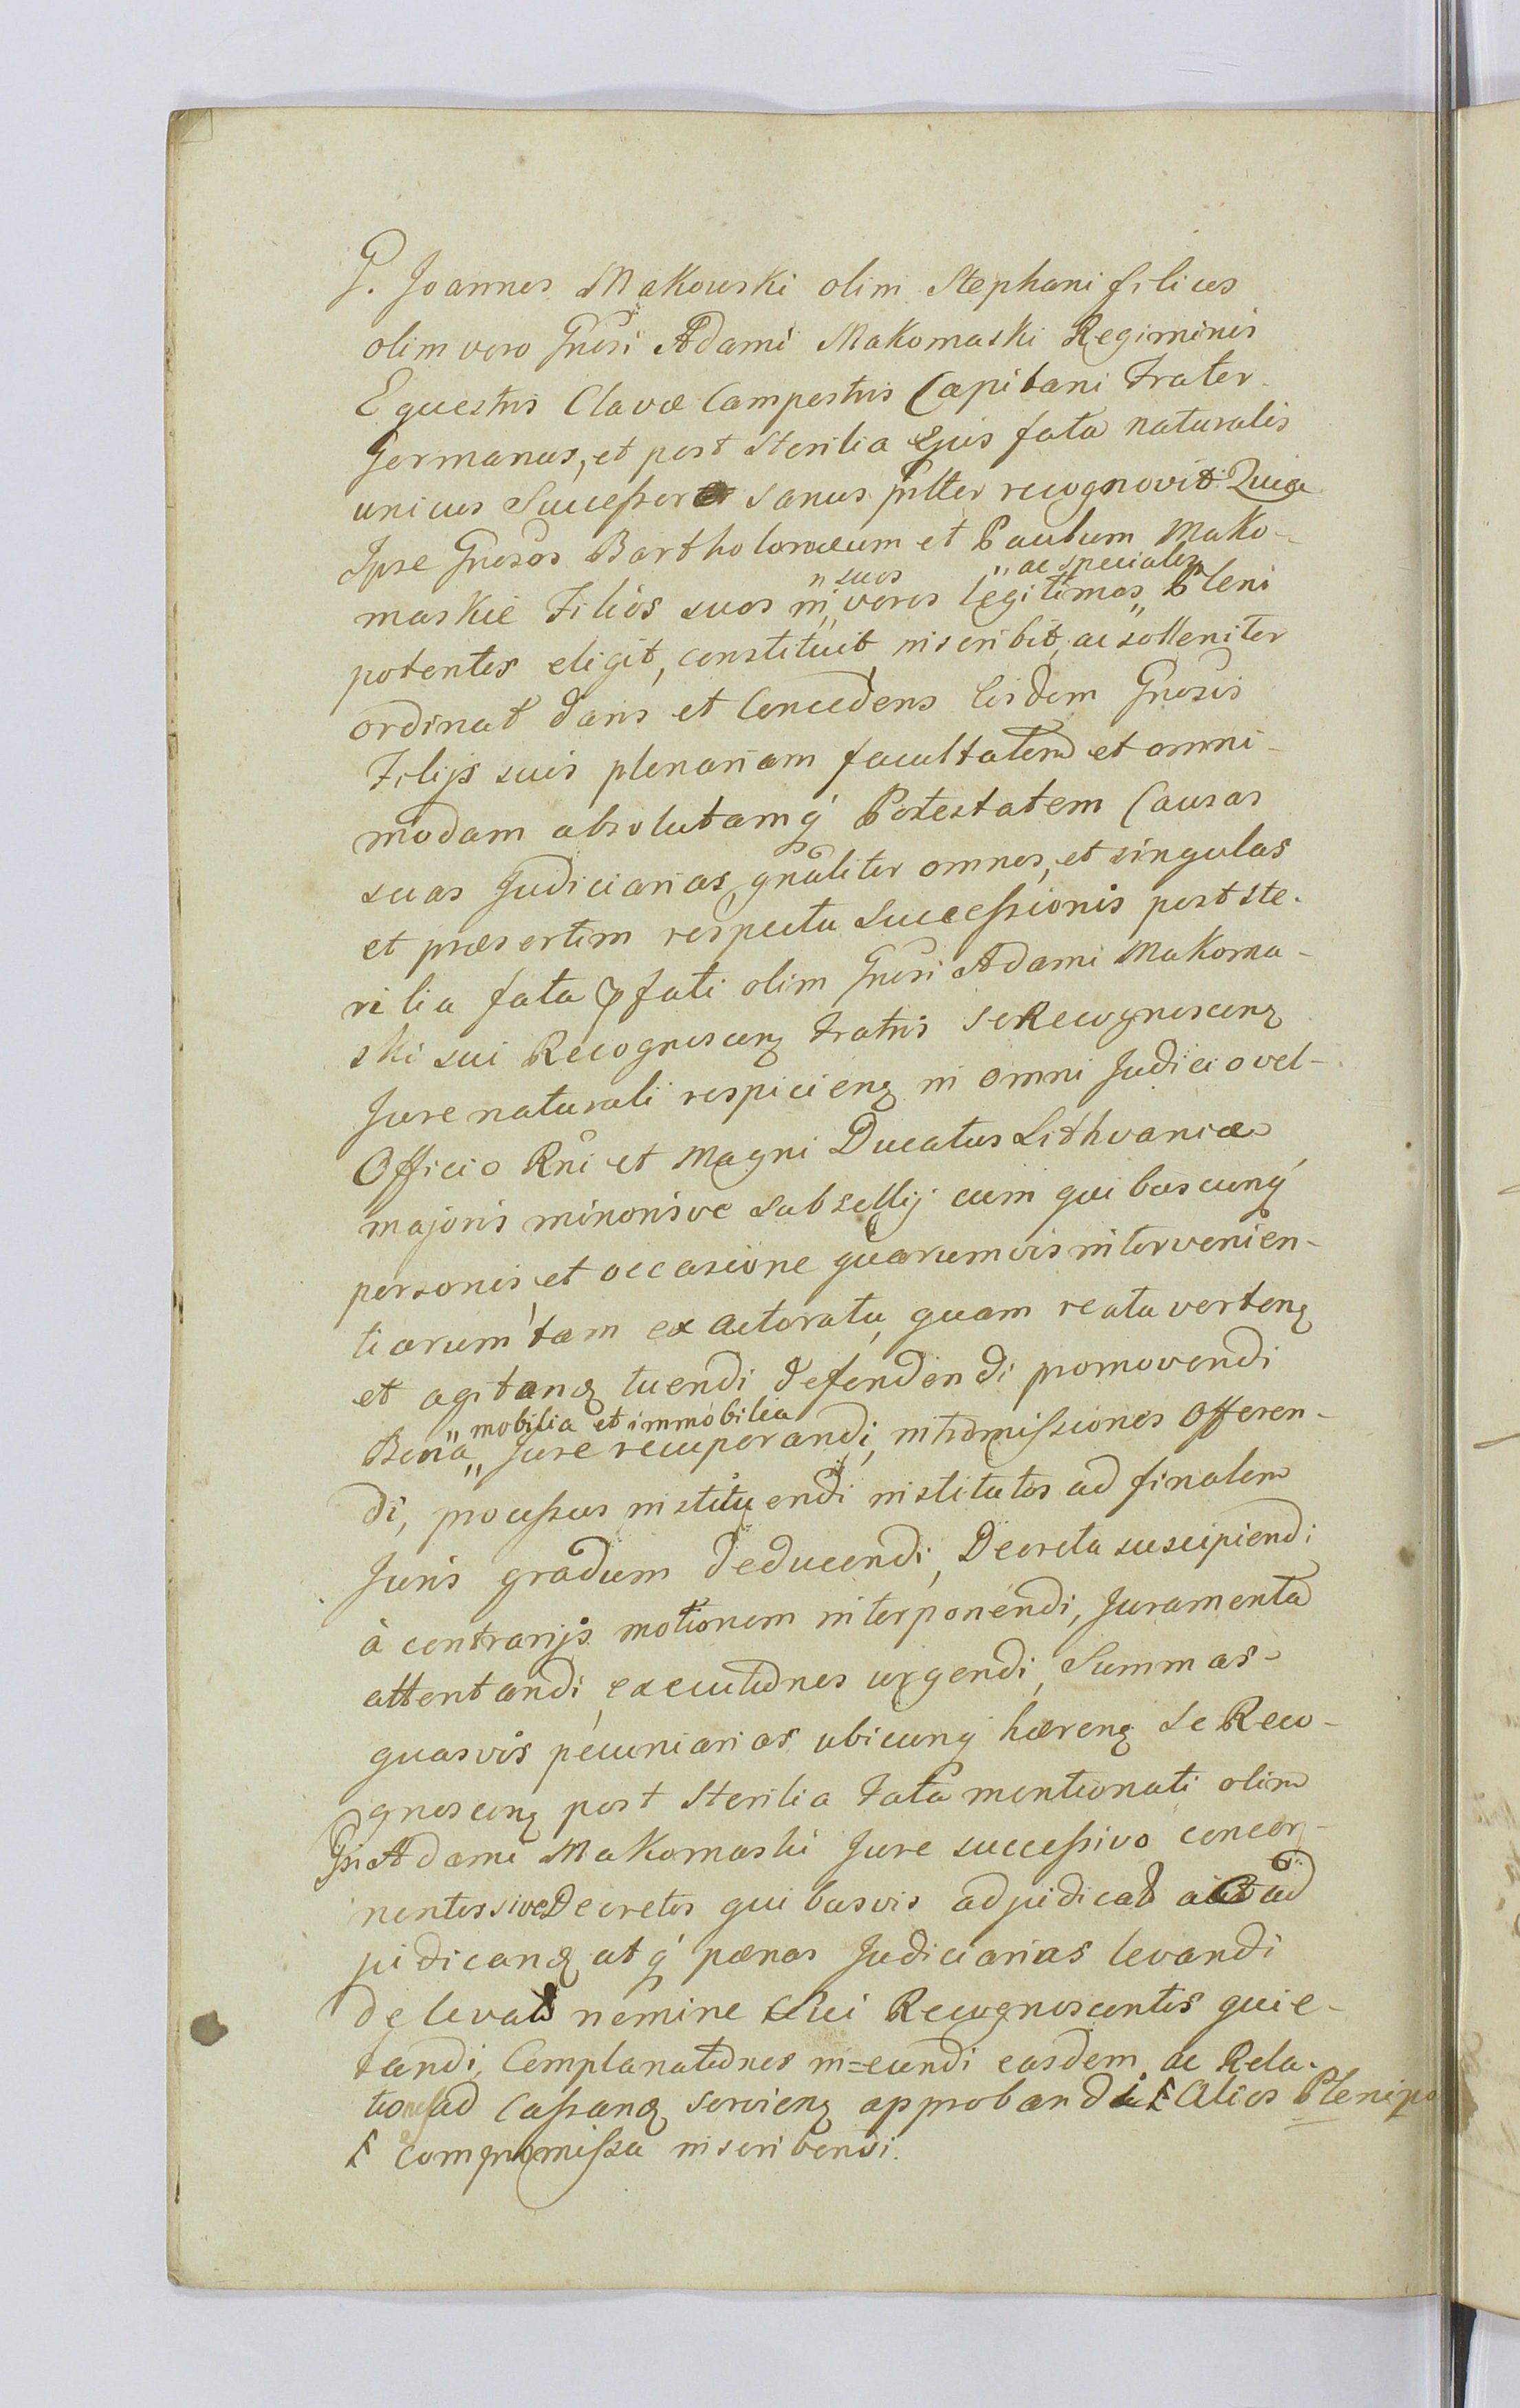 G. Joannes Makowski olim Stephani filius
olim vero Gnosi Adami Makomaski Regiminis
Equestris Clavæ Campestris Capitani Frater
Germanus, et post Sterilia Ejus fata naturalis
unicus Successor sanus pnltter recognovit Quia
Ipse Gnosos Bartholomæum et Paulum Mako-
"suos "ac speciales
maskie Filios suos in" veros legitimos" Pleni
potentes eligit, constituit inscribit, ac solleniter
ordinat dans et Concedens Eisdem Gnosis
Filijs suis plenariam facultatem et omni-
modam absolutamq́ Potestatem Causas
suas Judiciarias gnaliter omnes, et singulas
et præsertim respectu Successionis post ste-
rilia fata p̄fati olim Gnosi Adami Makoma-
ski sui Recognoscenꝫ Fratris Se Recognoscenꝫ
Jure naturali respicienꝫ in omni Judicio vel-
Officio Rni et Magni Ducatus Lithvaniæ
majoris minorisve Subsellij cum quibuscunq́
personis et occasione quarumvis intervenien-
tiarum tam ex Actoratu, quam reatu vertenꝫ
et agitanꝫ tuendi defendendi promovendi
"mobilia et immobilia
Bona" Jure recuperandi, intromissiones Offeren-
di, processus instituendi institutos ad finalem
Juris gradum deducendi, Decreta suscipiendi
à contrarijs motionem interponendi, Juramenta
attentandi, executiones urgendi, Summas-
quasvis pecuniarias ubicunq́ hærenꝫ Se Reco-
gnoscenꝫ post Sterilia Fata mentionati olim
Gsi Adami Makomaski Jure successivo concer-
nentes sive Decretis quibusvis adjudicat aut ad
judicanꝫ atq́ pænas Judiciarias levandi
de levatis nomine Sui Recognoscentis quie-
tandi, Complanationes in=eundi easdem ac Rela-
tiones ad Cassanꝫ servienꝫ approbandi ꟻ Alios Plenipo
ꟻ compromissa inscribendi.